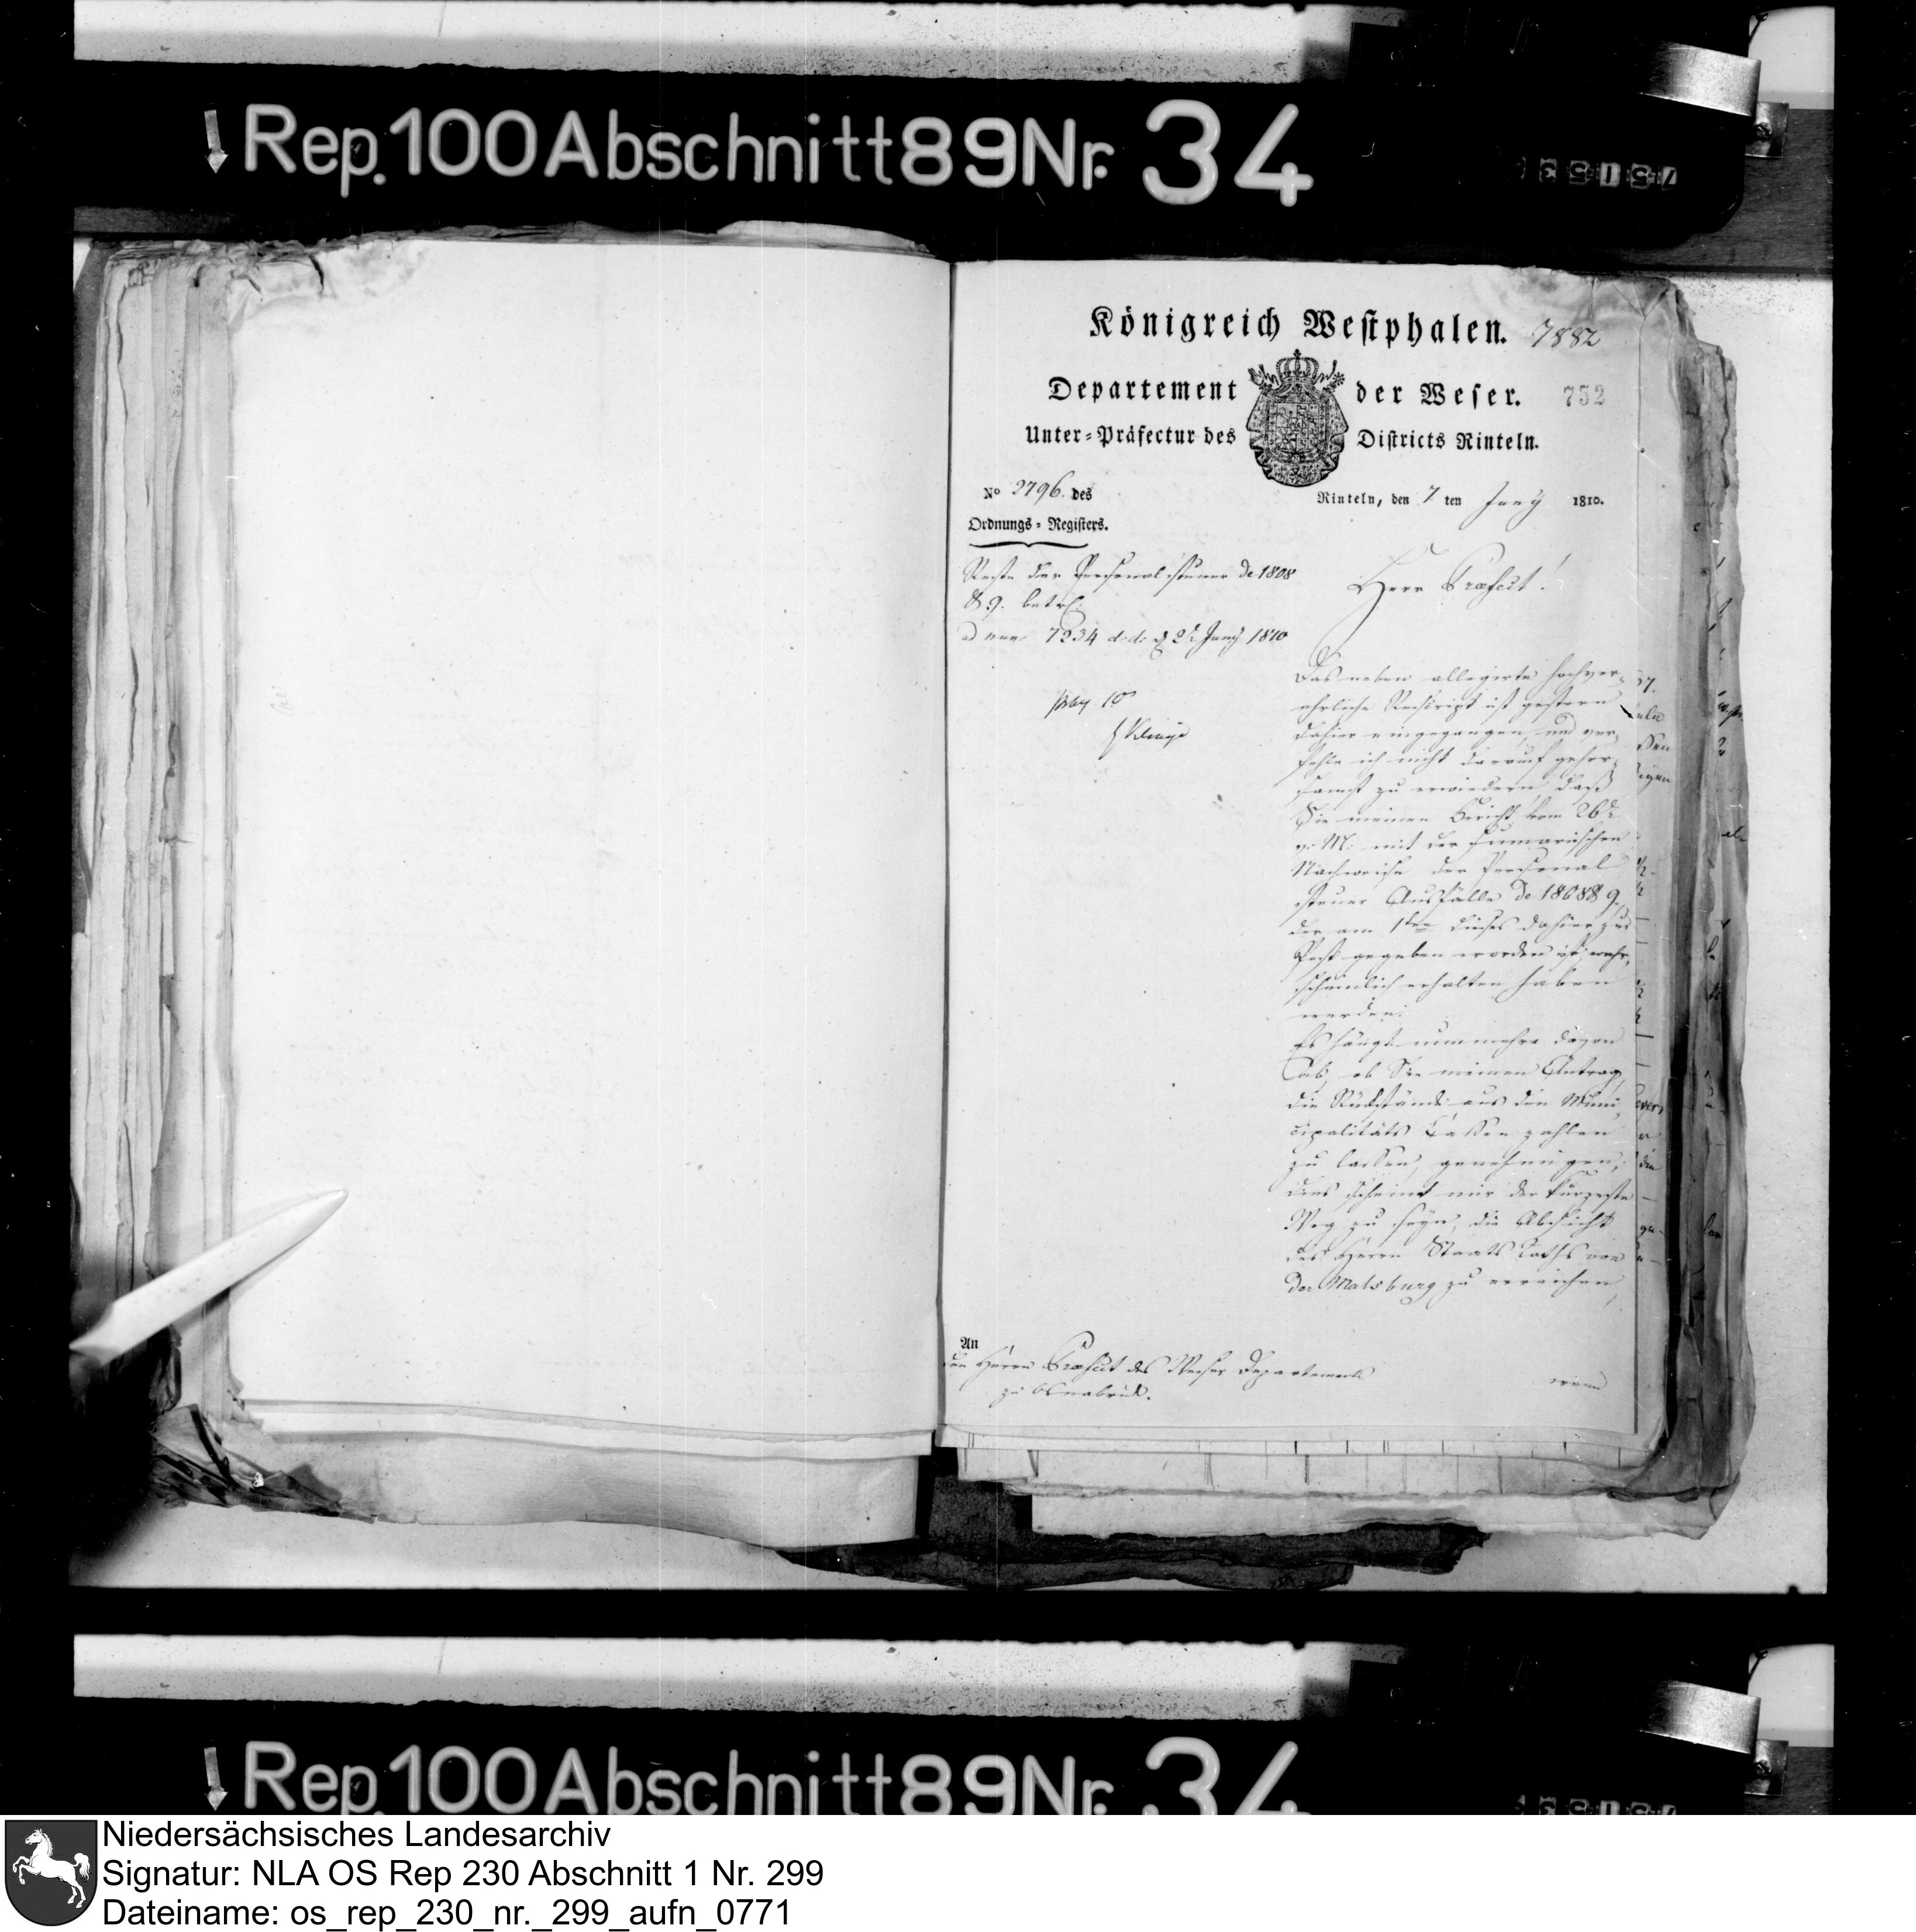 Rep. 100 Abschnitt 89 Nr. 34
Königreich Westphalen.
7882
Departement der Weser.
752
Unter-Präfectur des Districts Rinteln.
No 2796. des
Ordnungs-Registers.
Rinteln, den 7 ten Juny 1810.
Reste der Personalsteuer de 1808
& 9. betrf.
ad num 7234 d. d. 2t Juny 1810
Herr Præfect!
Das neben allegirte hochver-
ehrliche Rescript ist gestern
dahier eingegangen, und ver-
fehle ich nicht darauf gehor-
samst zu erwiedern, daß
Sie meinen Bericht vom 26t
v. M. mit der sumarischen
Nachweise der Personal
steuer Ausfälle de 1808 & 9.
der am 1ten dieses dahier zur
Post gegeben worden ist, wahr-
scheinlich erhalten haben
werden.
Es hängt nunmehro davon
ab, ob Sie meinen Antrag,
die Rückstände aus den Muni-
cipalitäts Cassen zahlen
zu lassen, genehmigen;
dies scheint mir der kürzeste
Weg zu seyn, die Absicht
des Herrn Staats Raths von
der Malsburg zu erreichen,
An
den Herrn Præfect des Weser Departements
zu Osnabrück.
wenn
Rep. 100 Abschnitt 89 Nr. 34
Niedersächsisches Landesarchiv
Signatur: NLA OS Rep 230 Abschnitt 1 Nr. 299
Dateiname: os_rep_230_nr._299_aufn_0771